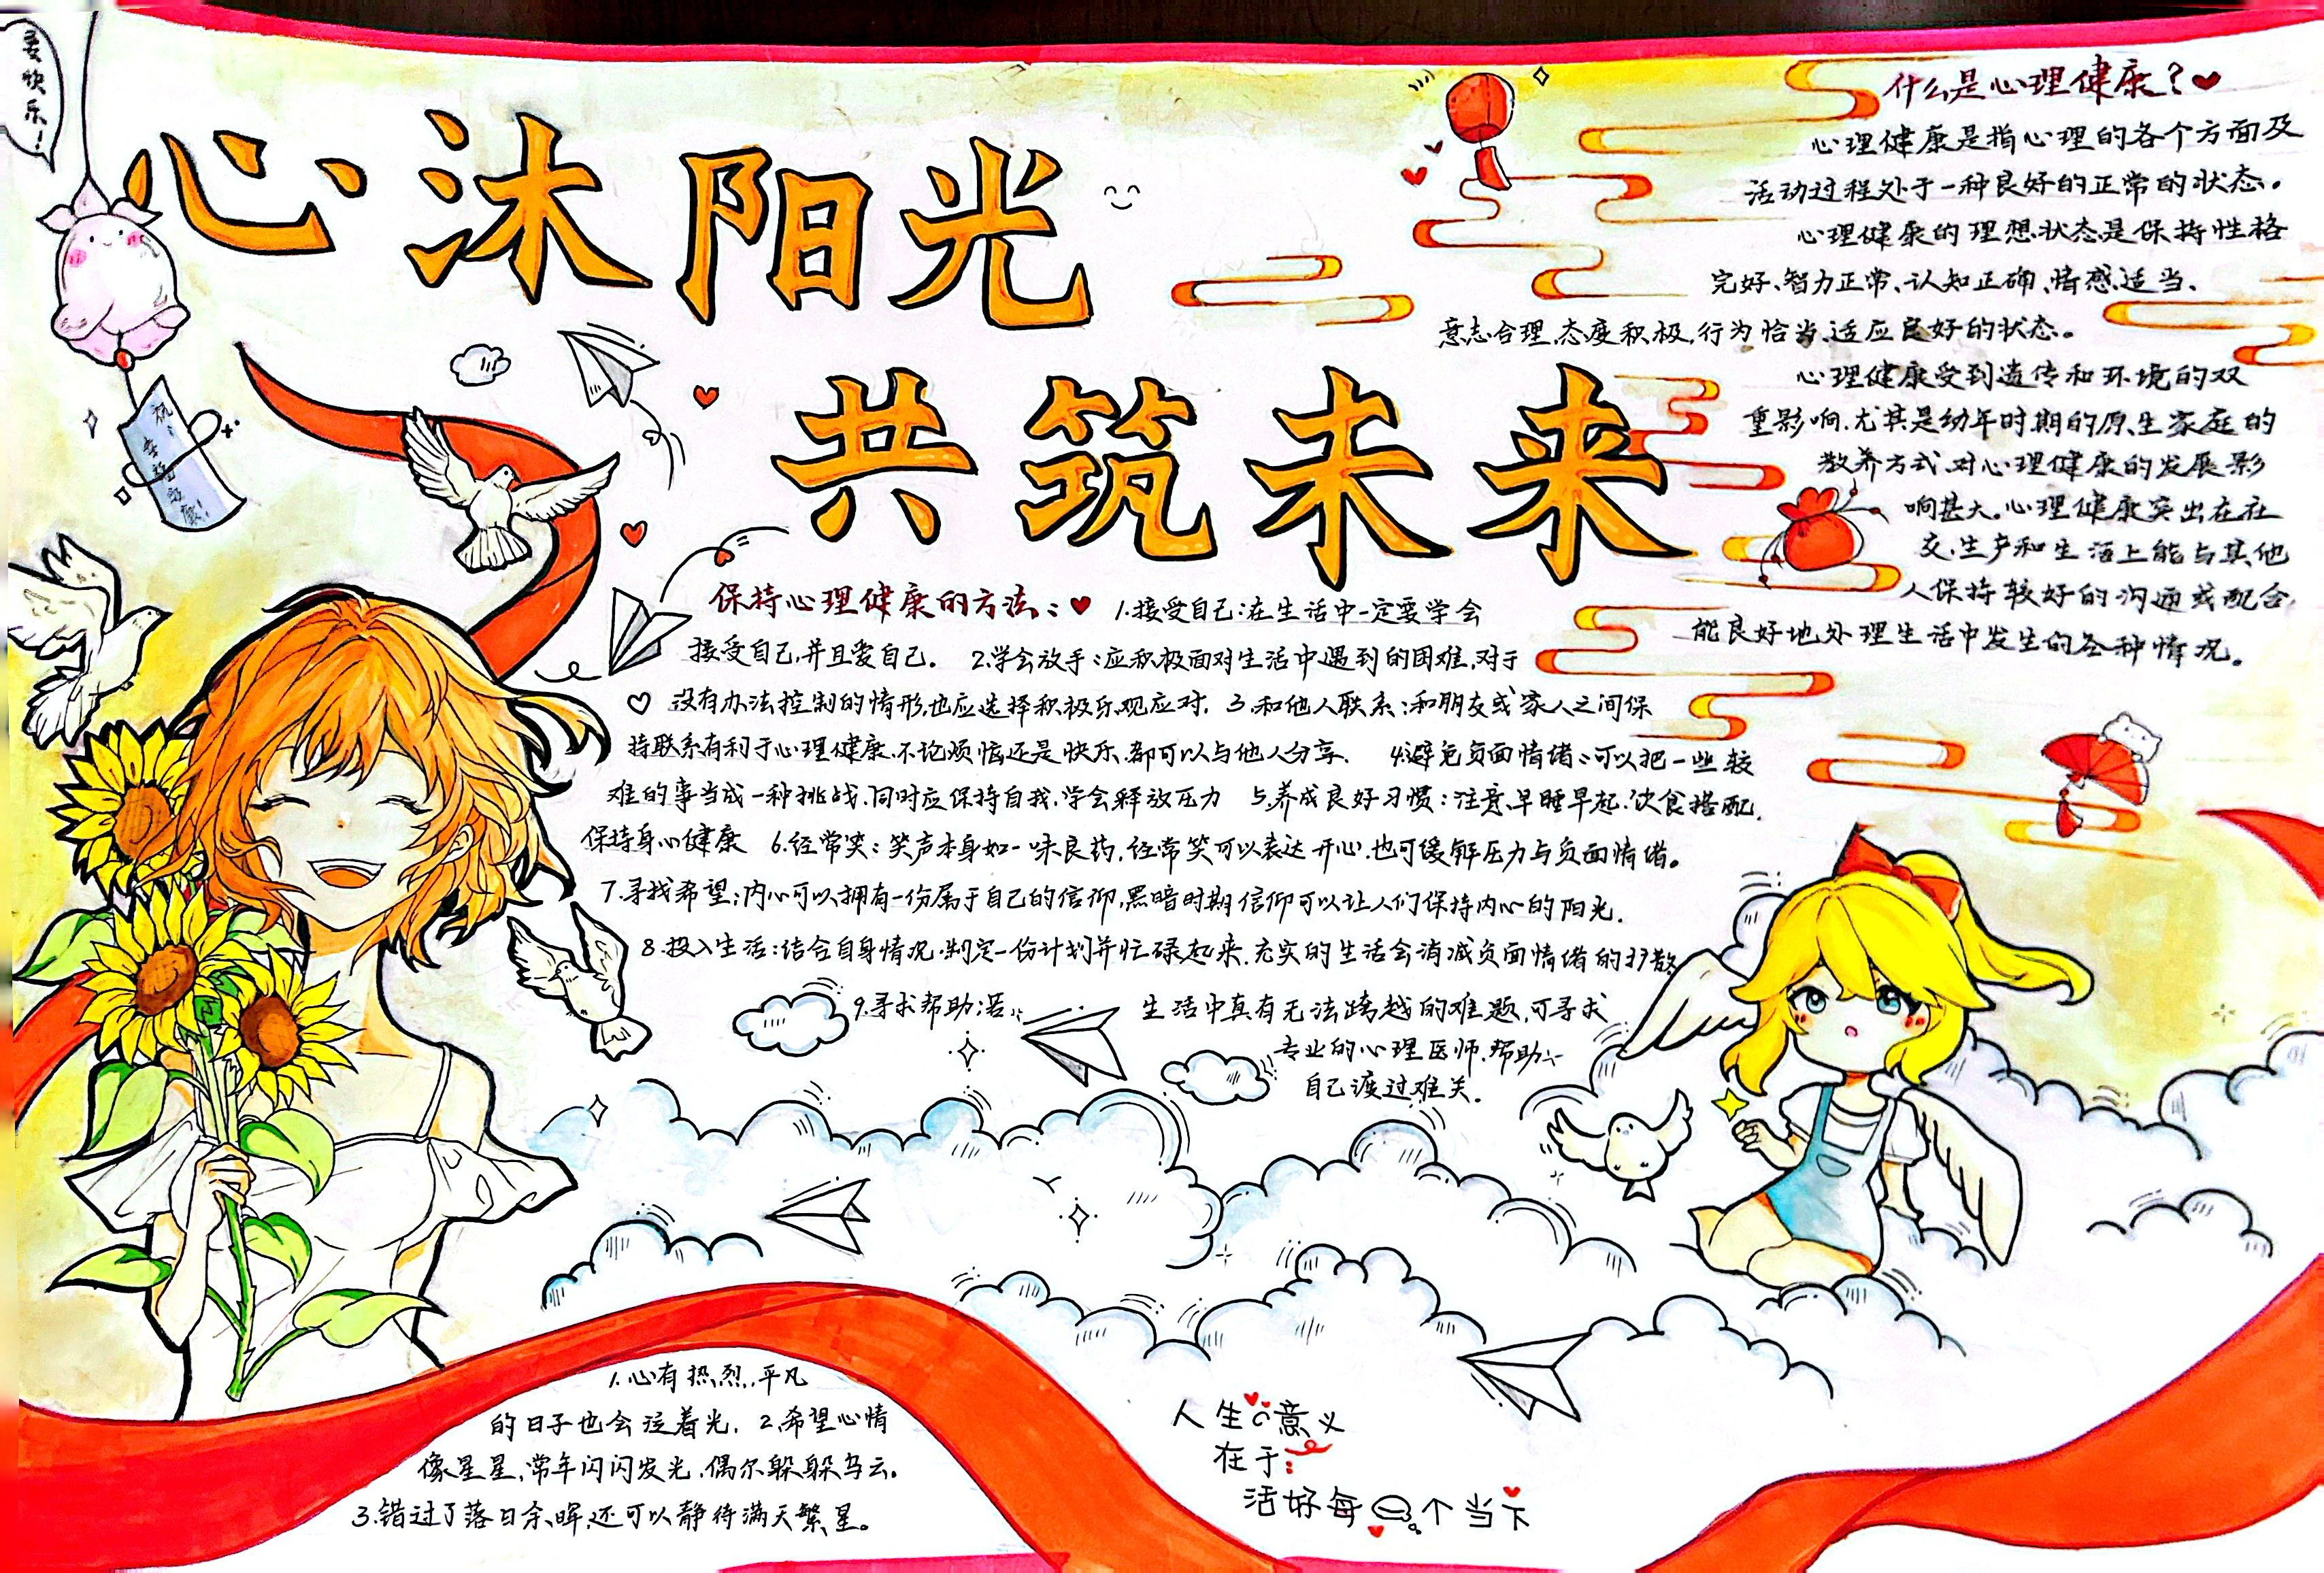 要快乐！
心沐阳光
共筑未来
什么是心理健康？
心理健康是指心理的各个方面及
活动过程处于一种良好的正常的状态。
心理健康的理想状态是保持性格
完好、智力正常、认知正确、情感适当、
意志合理、态度积极、行为恰当、适应良好的状态。
心理健康受到遗传和环境的双
重影响,尤其是幼年时期的原生家庭的
教养方式,对心理健康的发展影
响甚大。心理健康突出在社
交、生产和生活上能与其他
人保持较好的沟通或配合,
能良好地处理生活中发生的各种情况。
保持心理健康的方法:
1.接受自己:在生活中一定要学会
接受自己,并且爱自己。 2.学会放手:应积极面对生活中遇到的困难,对于
没有办法控制的情形,也应选择积极乐观应对. 3.和他人联系:和朋友或家人之间保
持联系有利于心理健康.不论烦恼还是快乐.都可以与他人分享. 4.避免负面情绪:可以把一些较
难的事当成一种挑战.同时应保持自我.学会释放压力 5.养成良好习惯:注意早睡早起.饮食搭配,
保持身心健康 6.经常笑:笑声本身如一味良药,经常笑可以表达开心.也可缓解压力与负面情绪。
7.寻找希望:内心可以拥有一份属于自己的信仰,黑暗时期信仰可以让人们保持内心的阳光.
8.投入生活:结合自身情况.制定一份计划并忙碌起来.充实的生活会消减负面情绪的扩散
9.寻求帮助:若 生活中真有无法跨越的难题,可寻求
专业的心理医师.帮助
自己渡过难关.
1.心有热烈,平凡
的日子也会泛着光. 2.希望心情
像星星,常年闪闪发光,偶尔躲躲乌云。
3.错过了落日余晖,还可以静待满天繁星。
人生の意义
在于:
活好每一个当下